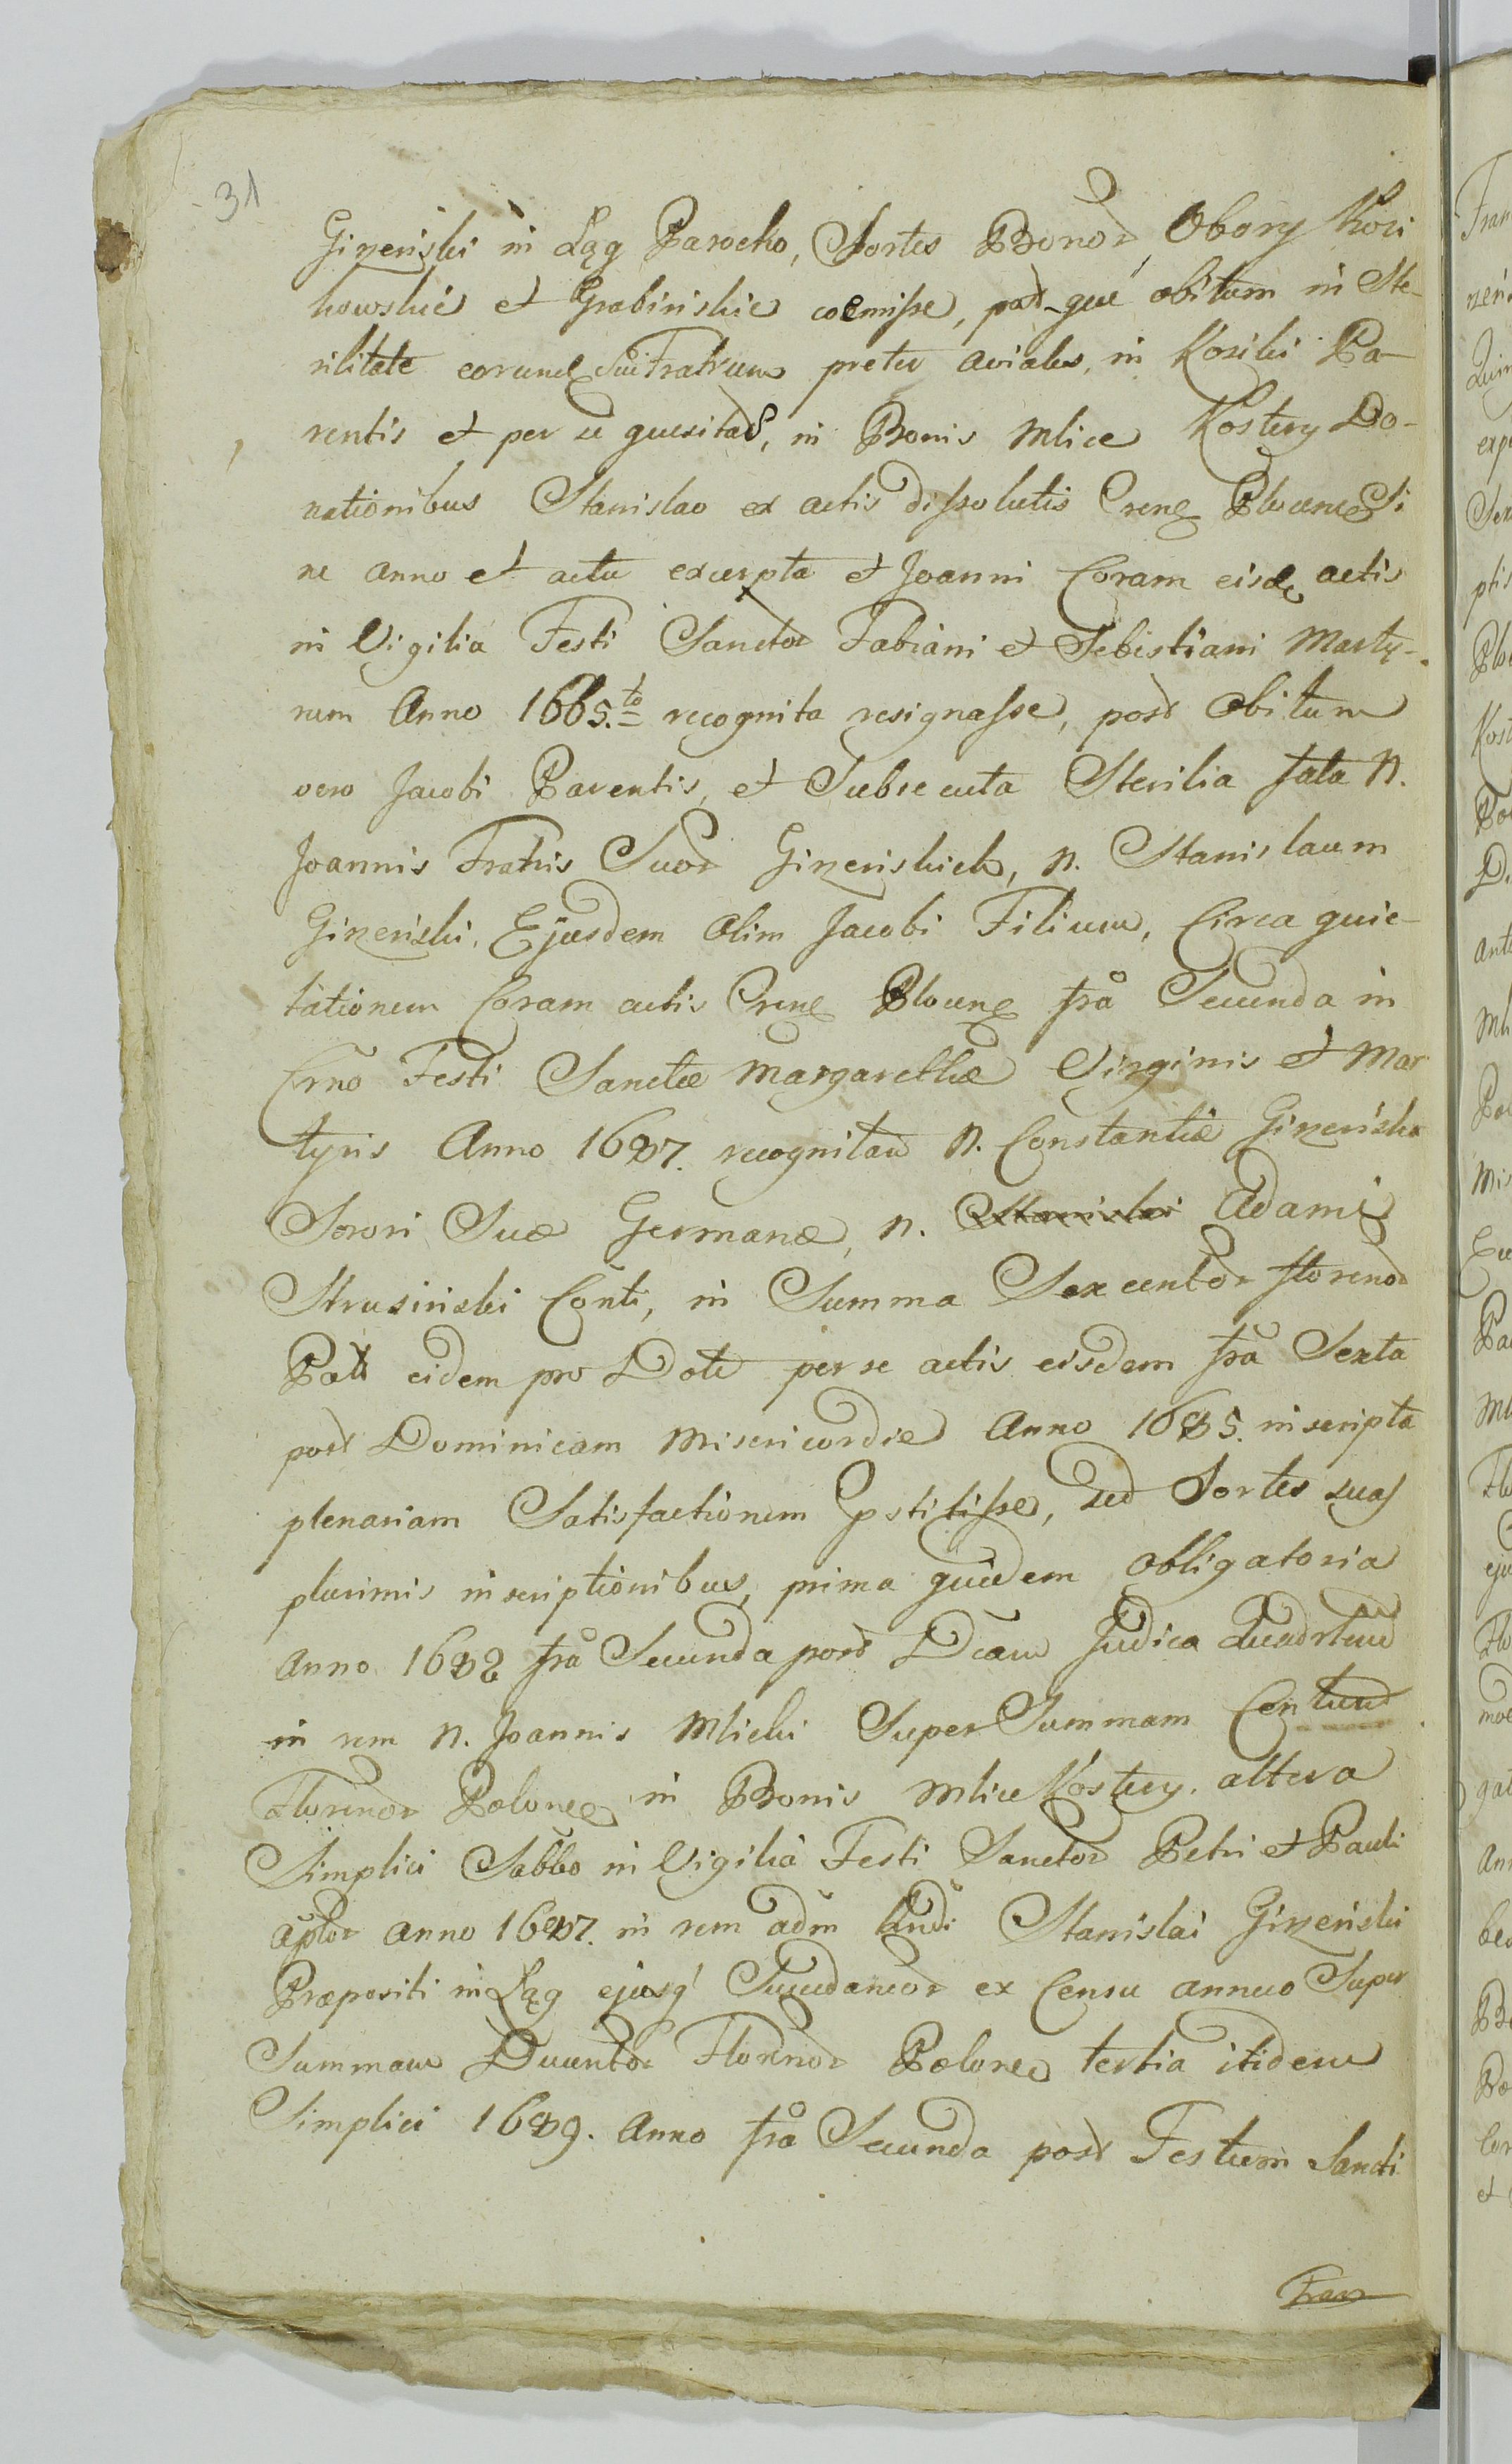 31
Gizeński in Łąg Parocho, Sortes Bonor, Obory Kosi
kowskie et Grabińskie coemisse, post que obitum in Ste-
rilitate eorund Sui Fratrum preter aviales, in Kosiki Pa-
rentis et per se quesitas, in Bonis Mlice Kostery Do-
nationibus Stanislao ex actis dissolutis Cren Plocen Si
ne anno et actu excerpta et Joanni Coram eisd actis
in Vigilia Festi Sanctor Fabiani et Sebestiani Marty-
rum Anno 1665.to recognita resignasse, post obitum
vero Jacobi Parentis, et Subsecuta Sterilia fata N.
Joannis Fratris Suor Gizeńskich, N. Stanislaum
Gizeński, Ejusdem olim Jacobi Filium, Circa quie-
tationem Coram actis Cren Plocen fra Secunda in
Crno Festi Sanctæ Margarethæ Virginis et Mar
tyris Anno 1687. recognitam N. Constantiæ Gizeńska
Sorori Suæ Germanæ, N. Stanislai Adami
Strusiński Conti, in Summa Sexcentor florenor
Poll eidem pro Dote per se actis eisdem fra Sexta
post Dominicam Misericordiæ Anno 1685. inscripta
plenariam Satisfactionem pstitisse, sed Sortes suas
plurimis inscriptionibus, prima quidem obligatoria
Anno 1688 fra Secunda post Dcam Judica
in rem N. Joannis Mlicki Super Summam Centum
Florenor Polone in Bonis Mlice Kostery. altera
Simplici Sabbo in Vigilia Festi Sanctor Petri et Pauli
aptor anno 1687. in rem adm Rndi Stanislai Gizeński
Præpositi in Łąg ejusq Succedaneor ex Censu annuo Super
Summam Ducentor Florenor Polone tertia itidem
Simplici 1689. Anno fra Secunda post Festum Sancti
Fran